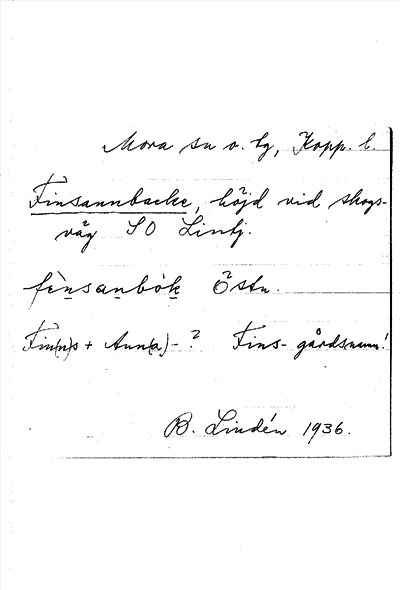 Mora sn o. tg, Kopp. l.
Finsannbacke, höjd vid skogs-
väg SO Lintj.
fìnsanbòk Östn.
Fin(n)s + Ann(a)- ? Fins- gårdsnamn!
B. Lindén 1936.